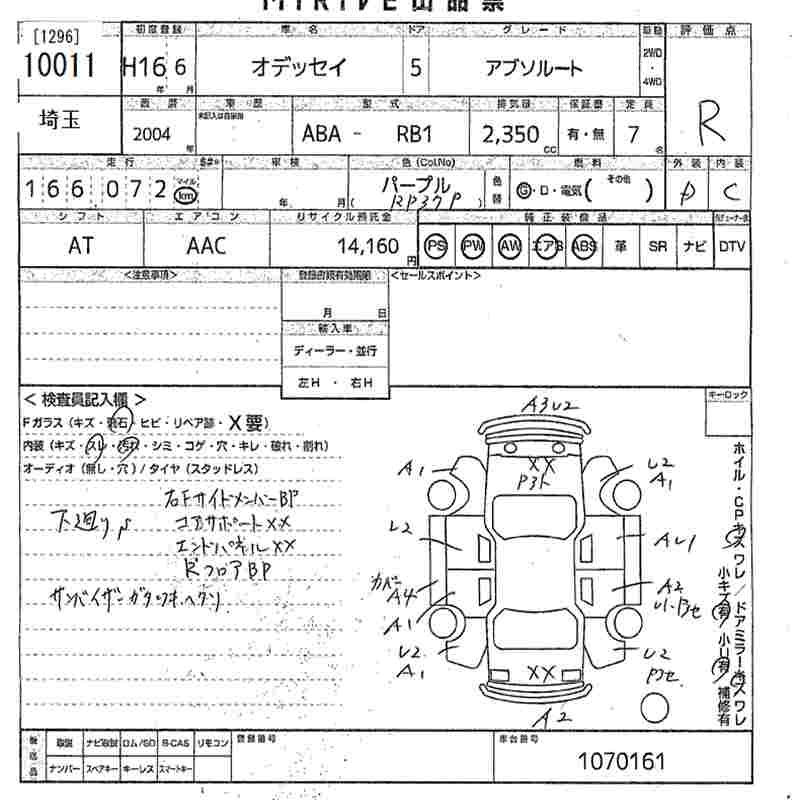 MIRIVE出品票
[1296]
10011
初度登録 車名 ドア グレード 駆動 評価点
H16 6 オデッセイ 5 アブソルート 2WD・4WD R
年 月
埼玉
車歴 型式 排気量 保証書 定員
2004 年 ABA - RB1 2,350 CC 有・無 7 名
走行 車検 色(Col.No) 燃料 外装 内装
166,072 マイル km 年 月 パープル ( RP37P ) 色替 G・D・電気( その他 ) D C
シフト エアコン リサイクル預託金 純正装備品
AT AAC 14,160円 PS PW AW エアB ABS 革 SR ナビ DTV
<注意事項> <セールスポイント>
月 日
輸入車
ディーラー・並行
左H ・ 右H
キーロック
< 検査員記入欄 >
Fガラス (キズ・飛石・ヒビ・リペア跡・X要)
内装 (キズ・スレ・汚れ・シミ・コゲ・穴・キレ・破れ・割れ)
オーディオ (無し・穴) / タイヤ (スタッドレス)
右FサイドメンバーBP
下廻りs
コアサポートXX
エンドパネルXX
RフロアBP
サンバイザーガタツキ.ヘタリ
A3U2
XX
Pヨト
A1
U2
A1
U2
AU1
カバー
A4
A2
A1
U2
A1
U2
XX
A2
ホイル・CPキズワレ/ドアミラーキズワレ
小キズ有 小U有 補修有
取説 ナビ取説 ロム/SD B-CAS リモコン 登録番号 車台番号
ナンバー スペアキー キーレス スマートキー 1070161